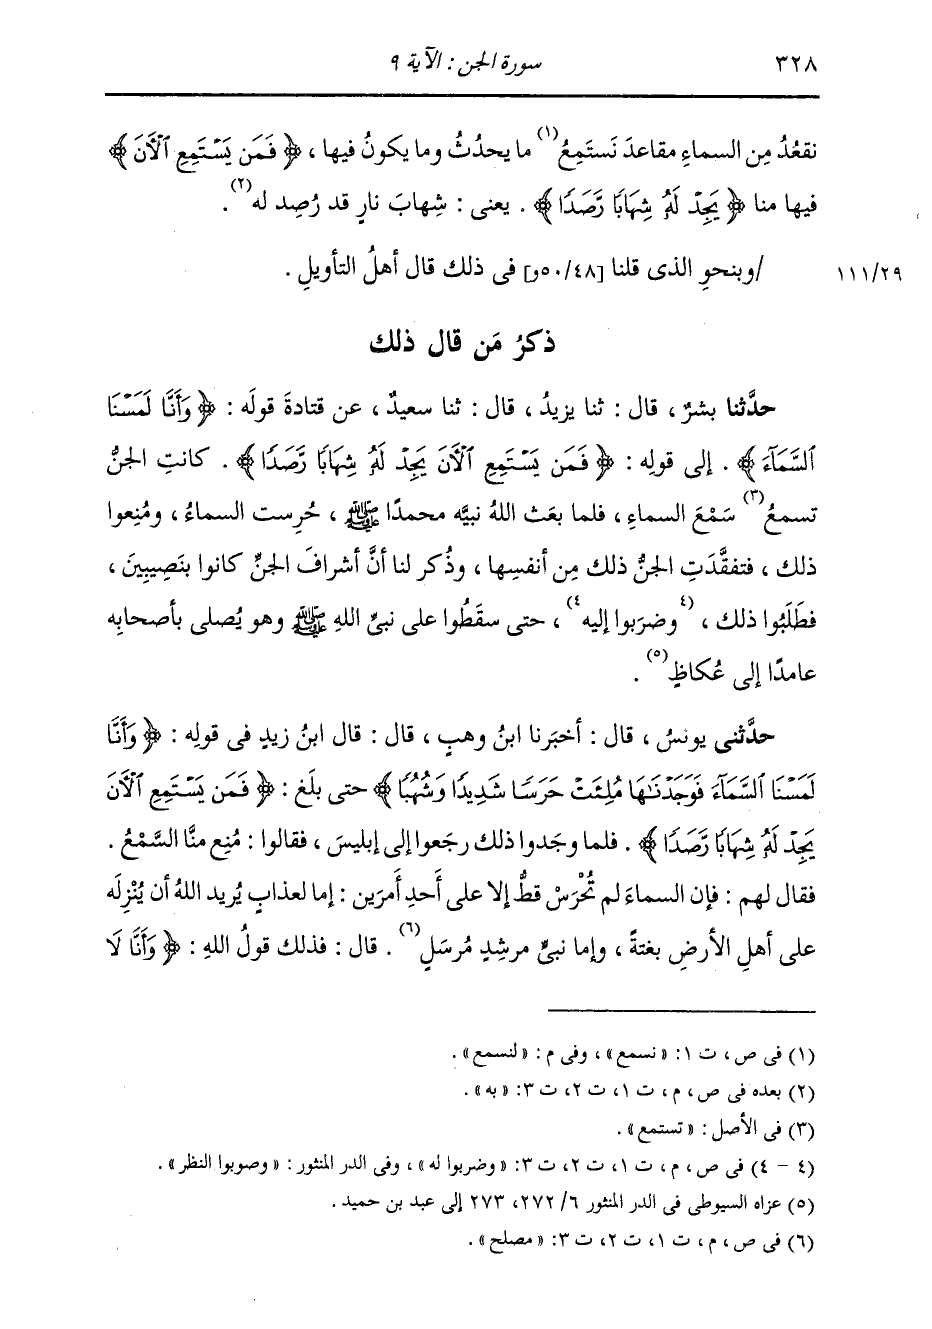 ٣٢٨ سورة الجن : الآية ٩
نقعُدُ مِن السماءِ مقاعدَ نَستَمِعُ(١) ما يحدُثُ وما يكونُ فيها ، ﴿ فَمَن يَسْتَمِعِ ٱلْآنَ ﴾
فيها منا ﴿ يَجِدْ لَهُۥ شِهَابًا رَّصَدًا ﴾ . يعنى : شِهابَ نارٍ قد رُصِد له(٢) .
١١١/٢٩ /وبنحوِ الذى قلنا [٥٠/٤٨و] فى ذلك قال أهلُ التأويلِ .
ذكرُ مَن قال ذلك
حدَّثنا بشرٌ ، قال : ثنا يزيدُ ، قال : ثنا سعيدٌ ، عن قتادةَ قولَه : ﴿ وَأَنَّا لَمَسْنَا
ٱلسَّمَآءَ ﴾ . إلى قولِه : ﴿ فَمَن يَسْتَمِعِ ٱلْآنَ يَجِدْ لَهُۥ شِهَابًا رَّصَدًا ﴾ . كانتِ الجنُّ
تسمعُ(٣) سَمْعَ السماءِ ، فلما بعَث اللهُ نبيَّه محمدًا ﷺ ، حُرِست السماءُ ، ومُنِعوا
ذلك ، فتفقَّدَتِ الجنُّ ذلك مِن أنفسِها ، وذُكر لنا أنَّ أشرافَ الجنِّ كانوا بنَصِيبِينَ ،
فطَلَبُوا ذلك ، (٤وضرَبوا إليه٤) ، حتى سقَطُوا على نبىِّ اللهِ ﷺ وهو يُصلى بأصحابِه
عامدًا إلى عُكاظٍ(٥) .
حدَّثنى يونسُ ، قال : أخبَرنا ابنُ وهبٍ ، قال : قال ابنُ زيدٍ فى قولِه : ﴿ وَأَنَّا
لَمَسْنَا ٱلسَّمَآءَ فَوَجَدْنَٰهَا مُلِئَتْ حَرَسًا شَدِيدًا وَشُهُبًا ﴾ حتى بلَغ : ﴿ فَمَن يَسْتَمِعِ ٱلْآنَ
يَجِدْ لَهُۥ شِهَابًا رَّصَدًا ﴾ . فلما وجَدوا ذلك رجَعوا إلى إبليسَ ، فقالوا : مُنِع منَّا السَّمْعُ .
فقال لهم : فإن السماءَ لم تُحْرَسْ قطُّ إلا على أَحدِ أَمرَين : إما لعذابٍ يُريد اللهُ أن يُنْزِلَه
على أهلِ الأرضِ بغتةً ، وإما نبىٌّ مرشِدٍ مُرسَلٍ(٦) . قال : فذلك قولُ اللهِ : ﴿ وَأَنَّا لَا
(١) فى ص ، ت ١: « نسمع » ، وفى م : « لنسمع » .
(٢) بعده فى ص ، م ، ت ١، ت ٢، ت ٣: « به » .
(٣) فى الأصل : « تستمع » .
(٤ - ٤) فى ص ، م ، ت ١، ت ٢، ت ٣: « وضربوا له » ، وفى الدر المنثور : « وصوبوا النظر » .
(٥) عزاه السيوطى فى الدر المنثور ٦/ ٢٧٢، ٢٧٣ إلى عبد بن حميد .
(٦) فى ص ، م ، ت ١، ت ٢، ت ٣: « مصلح » .